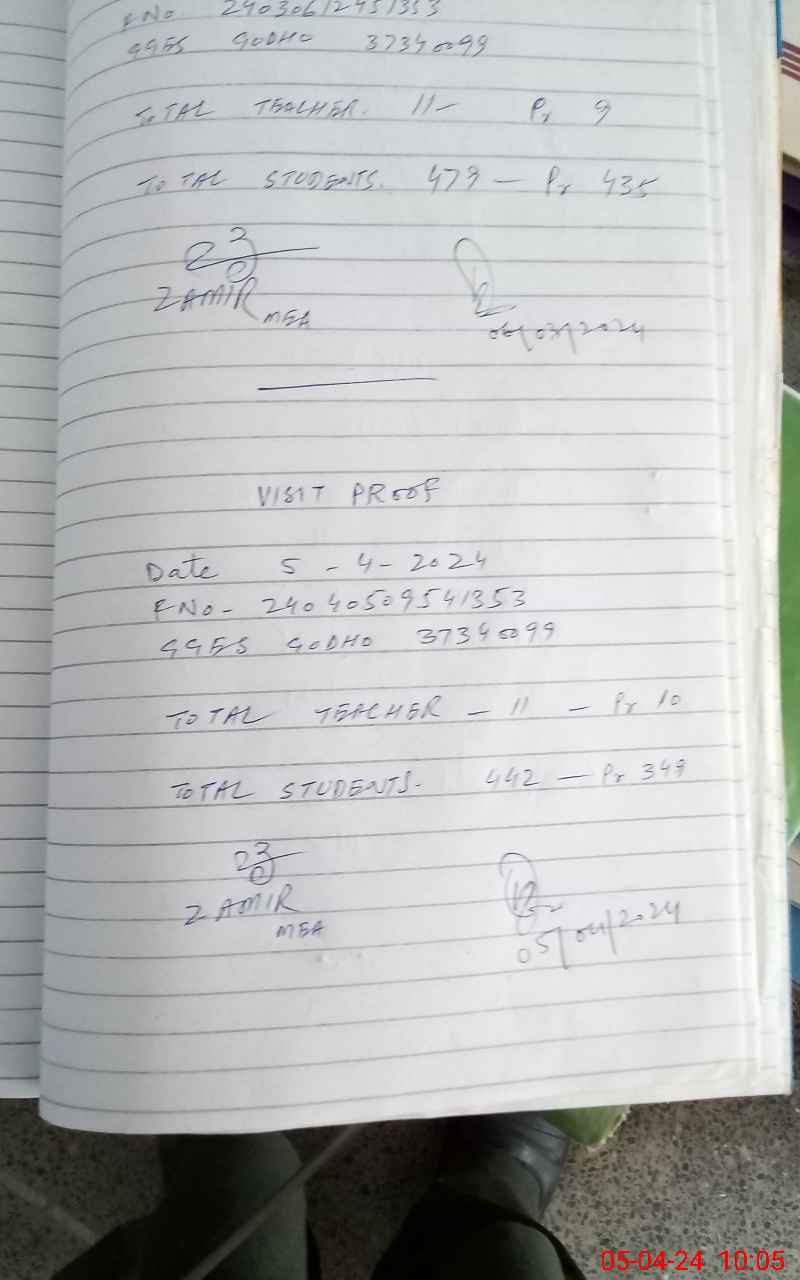 F NO 2403061245/353
GGES GODHO 37340099
TOTAL TEACHER. 11- Pr 9
TOTAL STUDENTS. 479 - Pr 435
ZAMIR
MEA
06/03/2024
VISIT PROOF
Date 5 - 4 - 2024
F NO - 24040509541353
GGES GODHO 37340099
TOTAL TEACHER - 11 - Pr 10
TOTAL STUDENTS. 442 - Pr 349
ZAMIR
MEA
05/04/2024
05-04-24 10:05